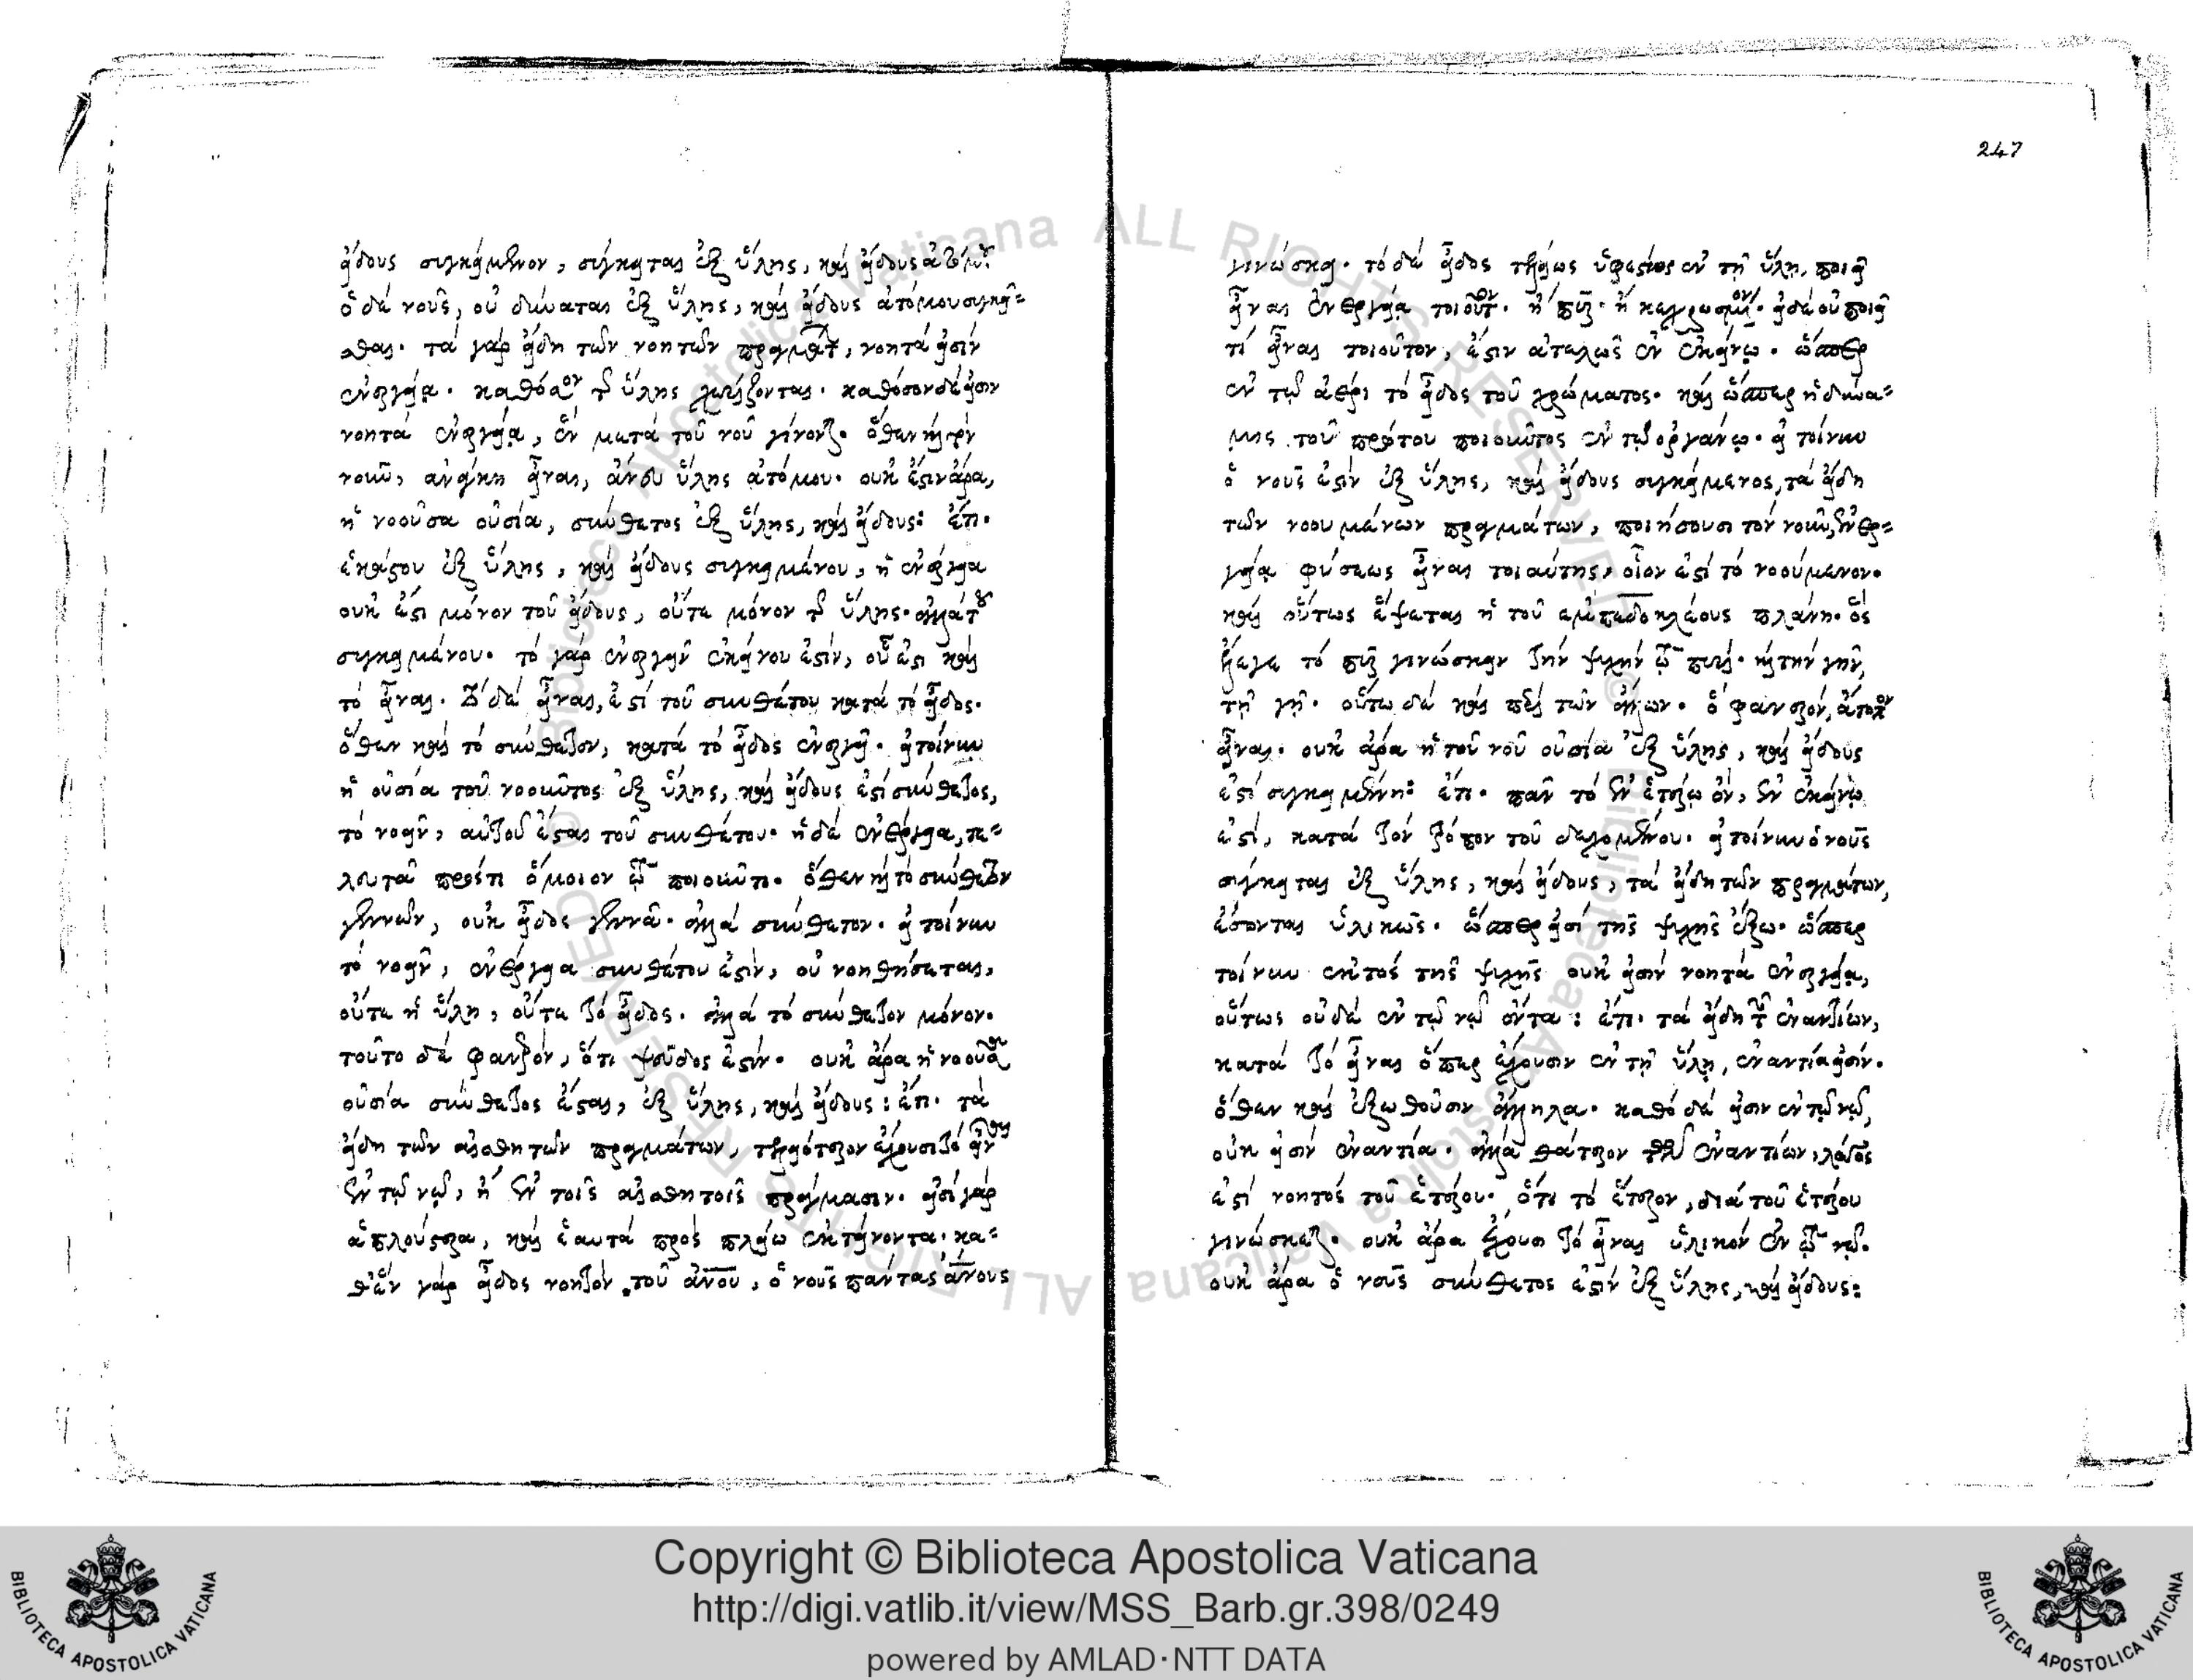 εἴδους συγκείμενον, σύγκειται ἐξ ὕλης, καὶ εἴδους ἀτόμου.
ὁ δὲ νοῦς, οὐ δύναται ἐξ ὕλης, καὶ εἴδους ἀτόμου συγκεῖ-
σθαι. τὰ γὰρ εἴδη τῶν νοητῶν πραγμάτων, νοητά εἰσιν
ἐνεργείᾳ. καθόσον τῆς ὕλης χωρίζονται. καθόσον δέ εἰσιν
νοητὰ ἐνεργείᾳ, ἓν μετὰ τοῦ νοῦ γίνονται. ὅθεν καὶ τὸν
νοῦν, ἀνάγκη εἶναι, ἄνευ ὕλης ἀτόμου. οὐκ ἔστιν ἄρα,
ἡ νοοῦσα οὐσία, σύνθετος ἐξ ὕλης, καὶ εἴδους: ἔτι.
ἑκάστου ἐξ ὕλης, καὶ εἴδους συγκειμένου, ἡ ἐνέργεια
οὐκ ἔστι μόνον τοῦ εἴδους, οὔτε μόνον τῆς ὕλης. ἀλλὰ τοῦ
συγκειμένου. τὸ γὰρ ἐνεργεῖν ἐκείνου ἐστίν, οὗ ἐστι καὶ
τὸ εἶναι. τὸ δὲ εἶναι, ἐστὶ τοῦ συνθέτου κατὰ τὸ εἶδος.
ὅθεν καὶ τὸ σύνθετον, κατὰ τὸ εἶδος ἐνεργεῖ. εἰ τοίνυν
ἡ οὐσία τοῦ νοοῦντος ἐξ ὕλης, καὶ εἴδους ἐστὶ σύνθετος,
τὸ νοεῖν, αὐτοῦ ἔσται τοῦ συνθέτου. ἡ δὲ ἐνέργεια, τε-
λευτᾷ πρός τι ὅμοιον τῷ ποιοῦντι. ὅθεν καὶ τὸ σύνθετον
γεννῶν, οὐκ εἶδος γεννᾷ. ἀλλὰ σύνθετον. εἰ τοίνυν
τὸ νοεῖν, ἐνέργεια συνθέτου ἐστίν, οὐ νοηθήσεται,
οὔτε ἡ ὕλη, οὔτε τὸ εἶδος. ἀλλὰ τὸ σύνθετον μόνον.
τοῦτο δὲ φανερόν, ὅτι ψεῦδος ἐστίν. οὐκ ἄρα ἡ νοοῦσα
οὐσία σύνθετος ἔσται, ἐξ ὕλης, καὶ εἴδους: ἔτι. τὰ
εἴδη τῶν αἰσθητῶν πραγμάτων, τελειότερον ἔχουσι τὸ εἶναι
ἐν τῷ νῷ, ἢ ἐν τοῖς αἰσθητοῖς πράγμασιν. εἰσὶ γὰρ
ἁπλούστερα, καὶ ἑαυτὰ πρὸς πλείω ἐκτείνοντα. κα-
θ' ἓν γὰρ εἶδος νοητὸν τοῦ ἀνου, ὁ νοῦς πάντας ἀνους
247
γινώσκει. τὸ δὲ εἶδος τελείως ὑφεστὼς ἐν τῇ ὕλῃ, ποιεῖ
εἶναι ἐνεργείᾳ τοιοῦτον. ἢ πῦρ. ἢ κεχρωσμένον. εἰ δὲ οὐ ποιεῖ
τι εἶναι τοιοῦτον, ἔστιν ἀτελῶς ἐν ἐκείνῳ. ὥσπερ
ἐν τῷ ἀέρι τὸ εἶδος τοῦ χρώματος. καὶ ὥσπερ ἡ δύνα-
μις τοῦ πρώτου ποιοῦντος ἐν τῷ ὀργάνῳ. εἰ τοίνυν
ὁ νοῦς ἐστιν ἐξ ὕλης, καὶ εἴδους συγκείμενος, τὰ εἴδη
τῶν νοουμένων πραγμάτων, ποιήσουσι τὸν νοῦν, ἐνερ-
γείᾳ φύσεως εἶναι τοιαύτης, οἷον ἐστὶ τὸ νοούμενον.
καὶ οὕτως ἕψεται ἡ τοῦ ἐμπεδοκλέους πλάνη. ὃς
ἔλεγε τὸ πῦρ γινώσκειν τὴν ψυχὴν τῷ πυρί. καὶ τὴν γῆν,
τῇ γῇ. οὕτω δὲ καὶ περὶ τῶν ἄλλων. ὃ φανερόν, ἄτοπον
εἶναι. οὐκ ἄρα ἡ τοῦ νοῦ οὐσία ἐξ ὕλης, καὶ εἴδους
ἐστὶ συγκειμένη: ἔτι. πᾶν τὸ ἐν ἑτέρῳ ὄν, ἐν ἐκείνῳ
ἐστί, κατὰ τὸν τρόπον τοῦ δεχομένου. εἰ τοίνυν ὁ νοῦς
σύγκειται ἐξ ὕλης, καὶ εἴδους, τὰ εἴδη τῶν πραγμάτων,
ἔσονται ὑλικῶς. ὥσπερ εἰσὶ τῆς ψυχῆς ἔξω. ὥσπερ
τοίνυν ἐκτὸς τῆς ψυχῆς οὐκ εἰσὶν νοητὰ ἐνεργείᾳ,
οὕτως οὐδὲ ἐν τῷ νῷ ὄντα: ἔτι. τὰ εἴδη τῶν ἐναντίων,
κατὰ τὸ εἶναι ὅπερ ἔχουσιν ἐν τῇ ὕλῃ, ἐναντία εἰσίν.
ὅθεν καὶ ἐξωθοῦσιν ἄλληλα. καθὸ δέ εἰσιν ἐν τῷ νῷ,
οὐκ εἰσὶν ἐναντία. ἀλλὰ θάτερον τῶν ἐναντίων, λόγος
ἐστὶ νοητὸς τοῦ ἑτέρου. ὅτι τὸ ἕτερον, διὰ τοῦ ἑτέρου
γινώσκεται. οὐκ ἄρα ἔχουσι τὸ εἶναι ὑλικὸν ἐν τῷ νῷ.
οὐκ ἄρα ὁ νοῦς σύνθετος ἐστὶν ἐξ ὕλης, καὶ εἴδους:
Copyright © Biblioteca Apostolica Vaticana
http://digi.vatlib.it/view/MSS_Barb.gr.398/0249
powered by AMLAD·NTT DATA
BIBLIOTECA APOSTOLICA VATICANA
BIBLIOTECA APOSTOLICA VATICANA